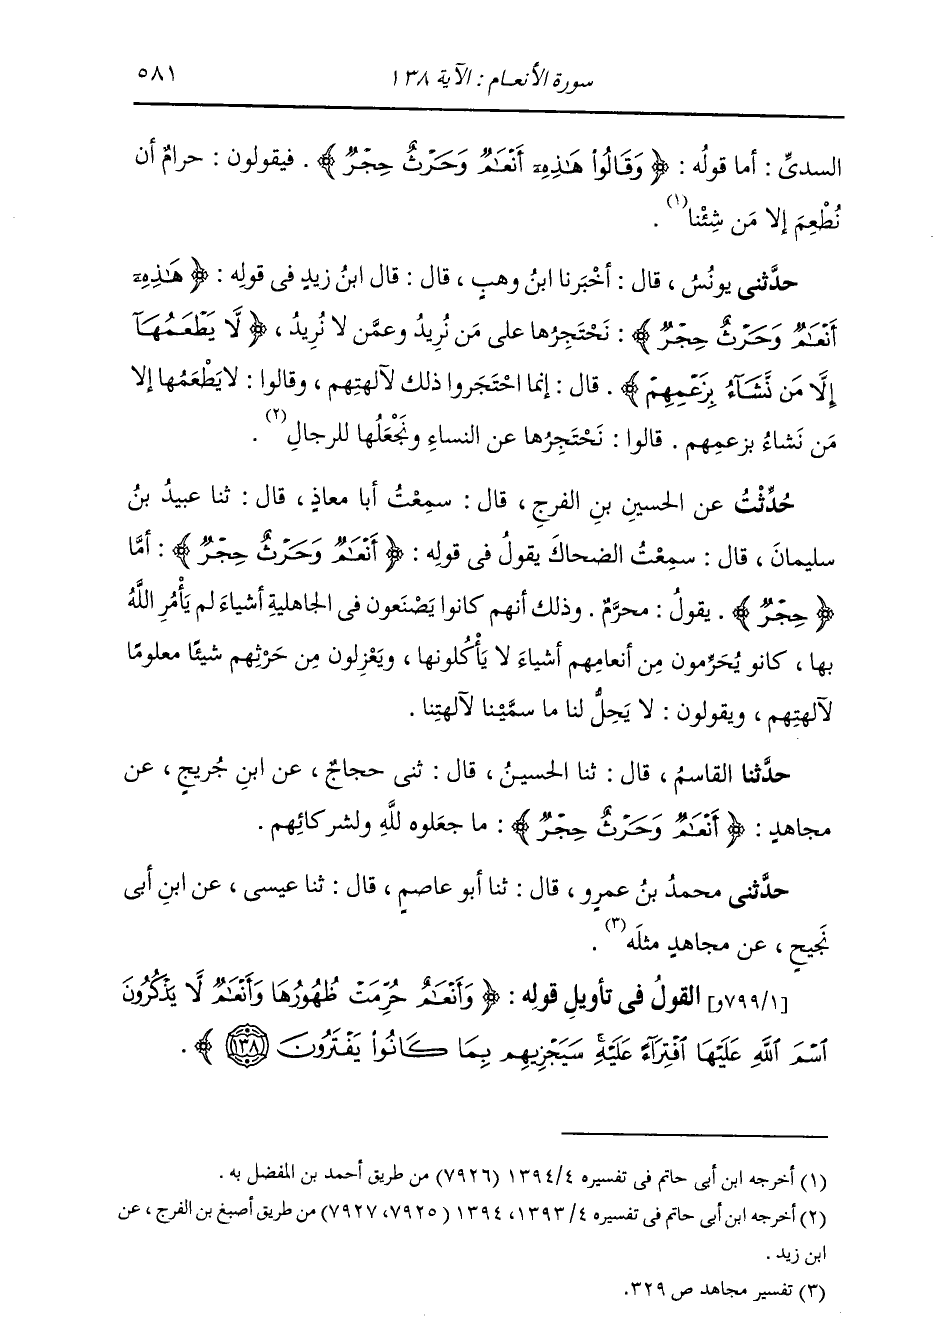 سورة الأنعام : الآية ١٣٨
٥٨١
السدىِّ : أما قولُه : ﴿ وَقَالُوا۟ هَـٰذِهِۦٓ أَنْعَـٰمٌ وَحَرْثٌ حِجْرٌ ﴾ . فيقولون : حرامٌ أن
نُطْعِمَ إلا مَن شِئْنا(١) .
حدَّثنى يونُسُ ، قال : أخْبَرنا ابنُ وهبٍ ، قال : قال ابنُ زيدٍ فى قولِه : ﴿ هَـٰذِهِۦٓ
أَنْعَـٰمٌ وَحَرْثٌ حِجْرٌ ﴾ : نَحْتَجِرُها على مَن نُرِيدُ وعمَّن لا نُرِيدُ ، ﴿ لَّا يَطْعَمُهَآ
إِلَّا مَن نَّشَآءُ بِزَعْمِهِمْ ﴾ . قال : إنما احْتَجَروا ذلك لآلهتِهم ، وقالوا : لايَطْعَمُها إلا
مَن نَشاءُ بزعمِهم . قالوا : نَحْتَجِرُها عن النساءِ ونَجْعَلُها للرجالِ(٢) .
حُدِّثْتُ عن الحسينِ بنِ الفرجِ ، قال : سمِعْتُ أبا معاذٍ ، قال : ثنا عبيدُ بنُ
سليمانَ ، قال : سمِعْتُ الضحاكَ يقولُ فى قولِه : ﴿ أَنْعَـٰمٌ وَحَرْثٌ حِجْرٌ ﴾ : أمَّا
﴿ حِجْرٌ ﴾ . يقولُ : محرَّمٌ . وذلك أنهم كانوا يَصْنَعون فى الجاهليةِ أشياءَ لم يَأْمُرِ اللَّهُ
بها ، كانو يُحَرِّمون مِن أنعامِهم أشياءَ لا يَأْكُلونها ، ويَعْزِلون مِن حَرْثِهم شيئًا معلومًا
لآلهتِهم ، ويقولون : لا يَحِلُّ لنا ما سمَّيْنا لآلهتِنا .
حدَّثنا القاسمُ ، قال : ثنا الحسينُ ، قال : ثنى حجاجٌ ، عن ابنِ جُريجٍ ، عن
مجاهدٍ : ﴿ أَنْعَـٰمٌ وَحَرْثٌ حِجْرٌ ﴾ : ما جعَلوه للَّهِ ولشركائِهم .
حدَّثنى محمدُ بنُ عمرٍو ، قال : ثنا أبو عاصمٍ ، قال : ثنا عيسى ، عن ابنِ أبى
نَجيحٍ ، عن مجاهدٍ مثلَه(٣) .
[٧٩٩/١و] القولُ فى تأويلِ قولِه : ﴿ وَأَنْعَـٰمٌ حُرِّمَتْ ظُهُورُهَا وَأَنْعَـٰمٌ لَّا يَذْكُرُونَ
ٱسْمَ ٱللَّهِ عَلَيْهَا ٱفْتِرَآءً عَلَيْهِ سَيَجْزِيهِم بِمَا كَانُوا۟ يَفْتَرُونَ ١٣٨ ﴾ .
(١) أخرجه ابن أبى حاتم فى تفسيره ١٣٩٤/٤ (٧٩٢٦) من طريق أحمد بن المفضل به .
(٢) أخرجه ابن أبى حاتم فى تفسيره ١٣٩٣/٤، ١٣٩٤ ( ٧٩٢٥، ٧٩٢٧) من طريق أصبغ بن الفرج ، عن
ابن زيد .
(٣) تفسير مجاهد ص ٣٢٩.